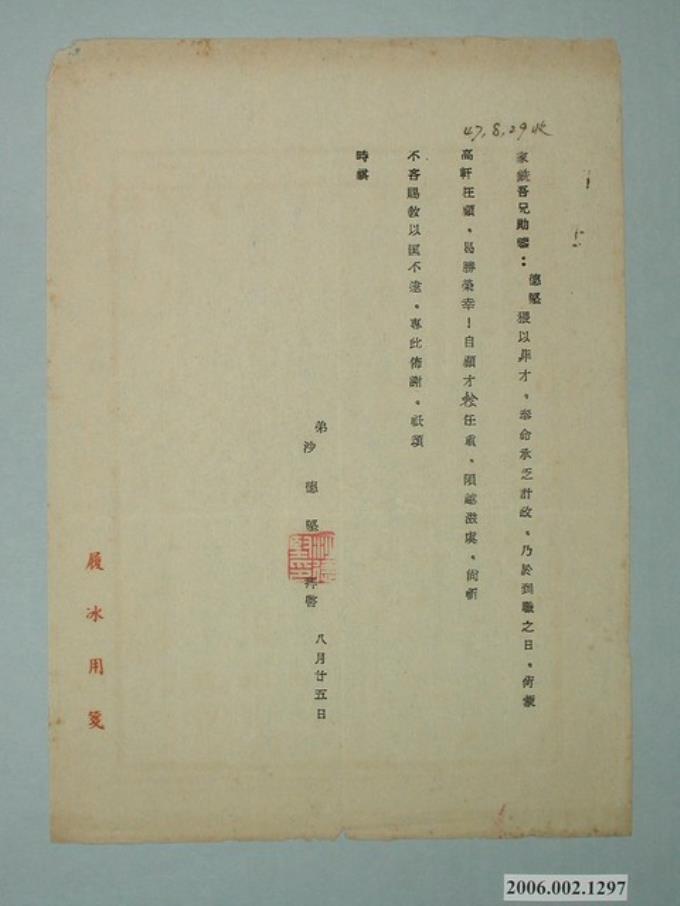 47,8,29收
家銑吾兄勛鑒：德堅猥以非才，奉命承乏計政，乃於到職之日，荷蒙
高軒枉顧，曷勝榮幸！自顧才輇任重，隕越滋虞，尚祈
不吝賜教以匡不逮。專此佈謝。祗頌
時祺
弟沙德堅 拜啓 八月廿五日
沙德堅印
履冰用箋
2006.002.1297